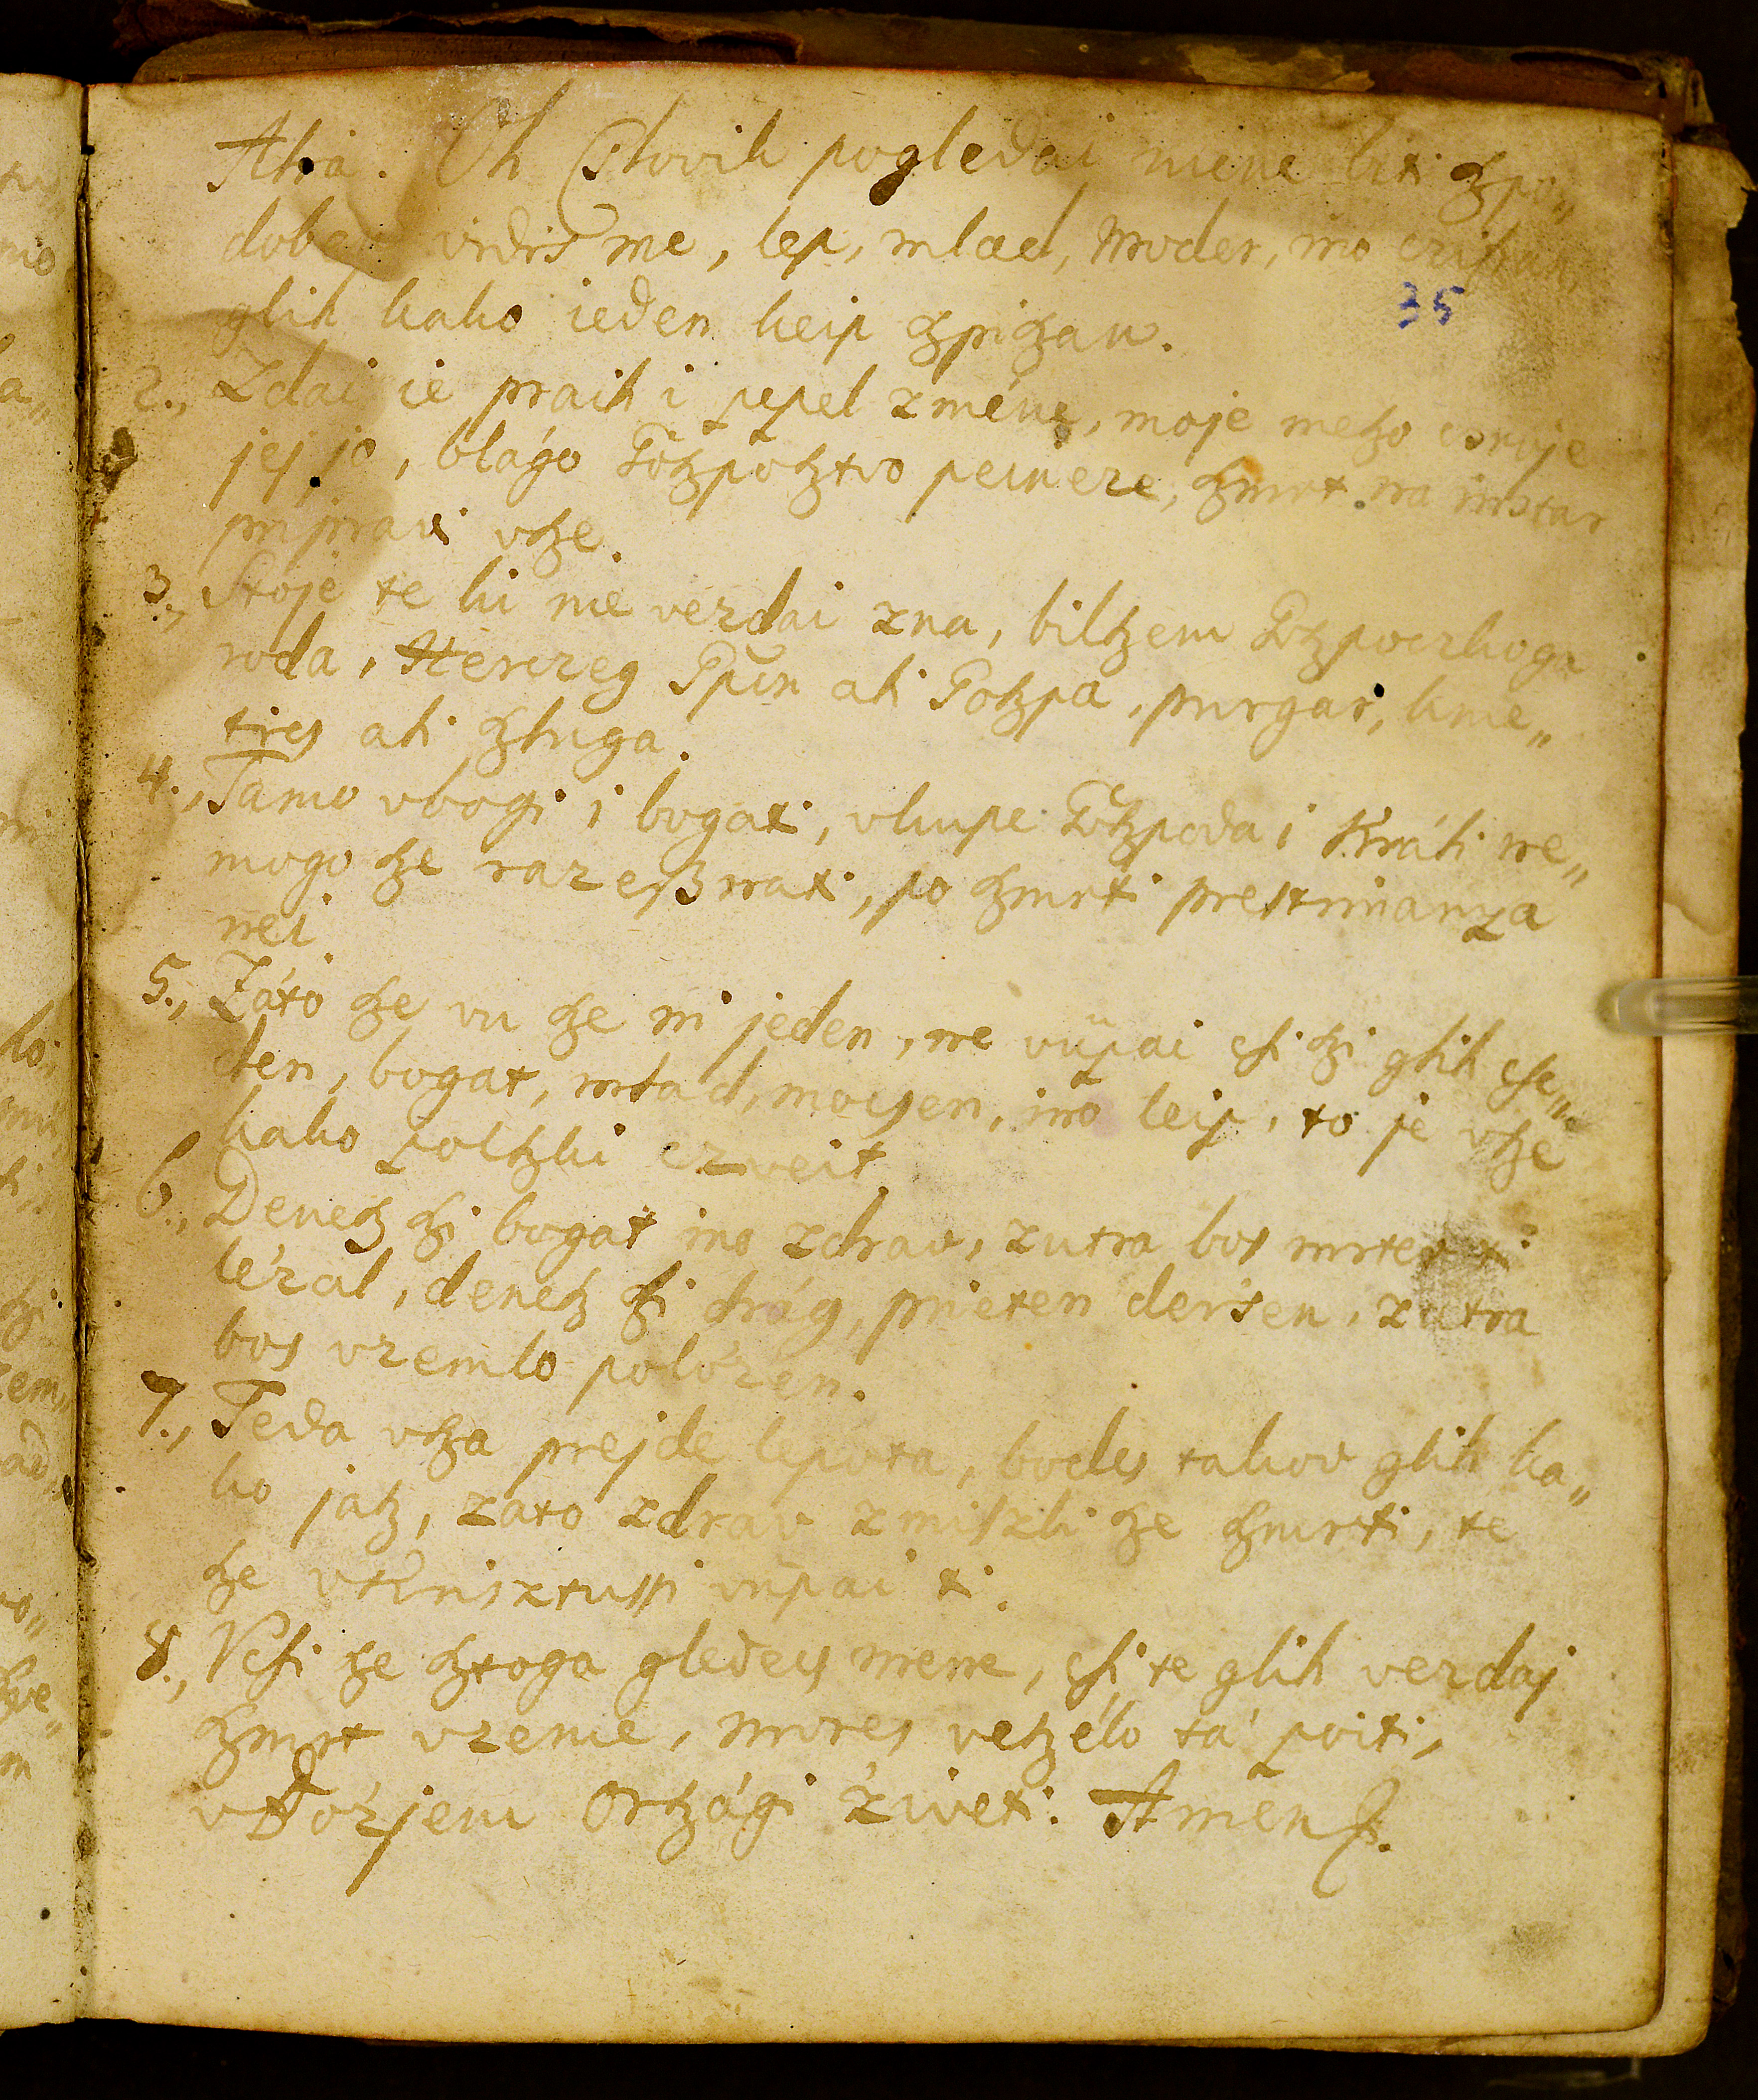 Alia. Oh Cslovik pogledai mene liti ſzpo„
dobe vidis me, lep, mlad, moder, ino
glih kako ieden keip ſzpiſzan.
35
2., Zdai ie praih i pepel zméne, moje meſzo cſrvje
jej jo, blágo Goſzpoſztvo peineze, ſzmrt na
pripravi vſze.
3., Stoje te ki nie vezdai zna, bilſzem Goſzpoczkoga
roda, Herczeg Špan ali Goſzpa, purgar, kme„
ties ali ſzluga.
4., Tamo vbogi i bogati, vkupe Goſzpoda i Králi ne„
mogo ſze razeſznati, po ſzmrti prestrimanza
nei.
5., Záto ſze vu ſze ni jeden, ne vüpai cſi ſzi glih cſe„
den, bogat, mlad, mocsen, ino leip, to je vſze
kako polſzki czveit.
6., Deneſz ſzi bogat ino zdrav, zutra bos mrtev
lézal, deneſz ſzi drág, prieten dersen, zutra
bos vzemlo polózen.
7., Teda vſza prejde lepota, bodes takov glih ka„
ko jaſz, zato zdrav zmiſzli ſze ſzmrti, te
ſze vKrisztuſſi vüpai ti.
8., Vcſi ſze ſztoga gledecs mene, cſi te glih vezdaj
ſzmrt vzeme, mores veſzélo tá poiti,
vBózjem Orſzági ziveti. Amen.